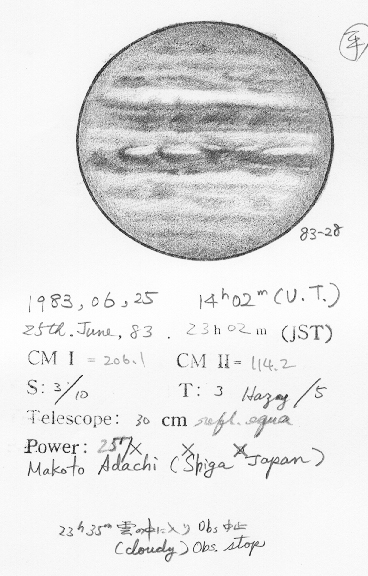 83-28
1983, 06, 25 14h02m (U.T.)
25th. June, 83. 23h02m (JST)
CM I = 206.1 CM II = 114.2
S: 3/10 T: 3 Hazy /5
Telescope: 30 cm refl. equa
Power: 257× × ×
Makoto Adachi (Shiga Japan)
23h35m 雲の中に入り Obs 中止
(cloudy) Obs. stop